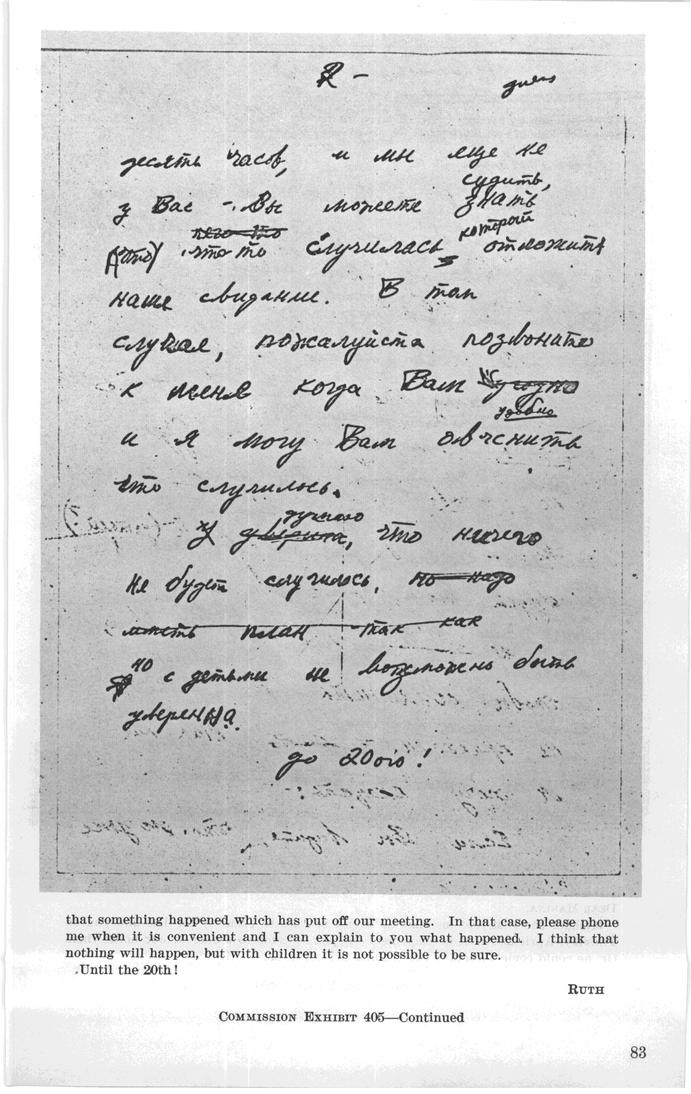 R –
десять часов, и мы еще не
судить,
у Вас – Вы можете знать
который
(что) что-то случилась отложить
наше свидание. В том
случае, пожалуйста позвоните
к меня когда Вам
удобно
и я могу Вам обяснить
что случилось.
думаю
Я уверена, что ничего
не будет случилось, но надо
иметь план так как
но с детьми не возможено быть
уверенна.
до 20ого!
that something happened which has put off our meeting. In that case, please phone
me when it is convenient and I can explain to you what happened. I think that
nothing will happen, but with children it is not possible to be sure.
Until the 20th!
RUTH
COMMISSION EXHIBIT 405—Continued
83